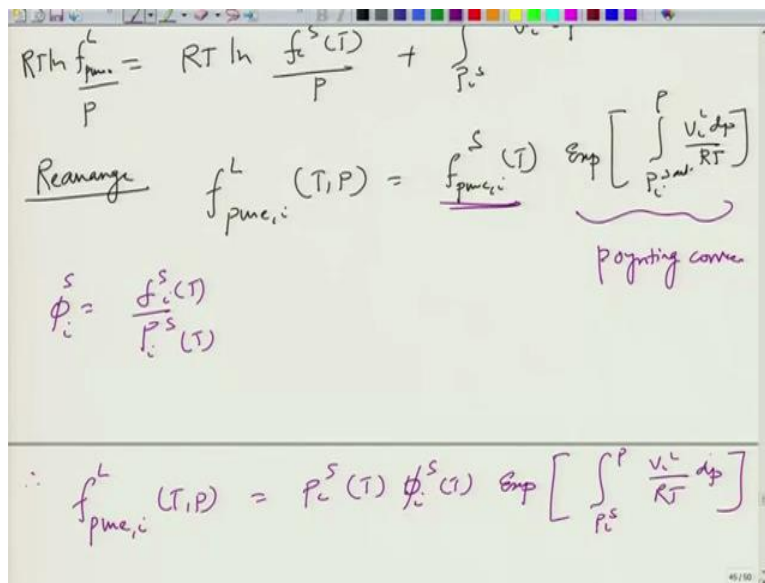 RT ln f^L_pure / P = RT ln f_i^S (T) / P + ∫_{P_i^S}
Rearrange f^L_{pure,i} (T,P) = f^S_{pure,i} (T) Exp [ ∫_{P_i^{sat.}}^{P} V_i^L dp / RT ]
Poynting correc
ϕ_i^S = f_i^S (T) / P_i^S (T)
∴ f^L_{pure,i} (T,P) = P_i^S (T) ϕ_i^S (T) Exp [ ∫_{P_i^S}^{P} V_i^L / RT dp ]
45/50